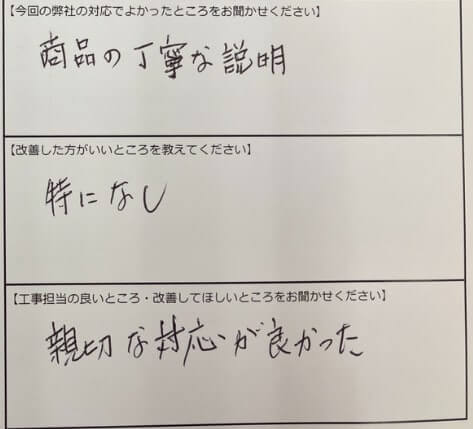 【今回の弊社の対応でよかったところをお聞かせください】
商品の丁寧な説明
【改善した方がいいところを教えてください】
特になし
【工事担当の良いところ・改善してほしいところをお聞かせください】
親切な対応が良かった